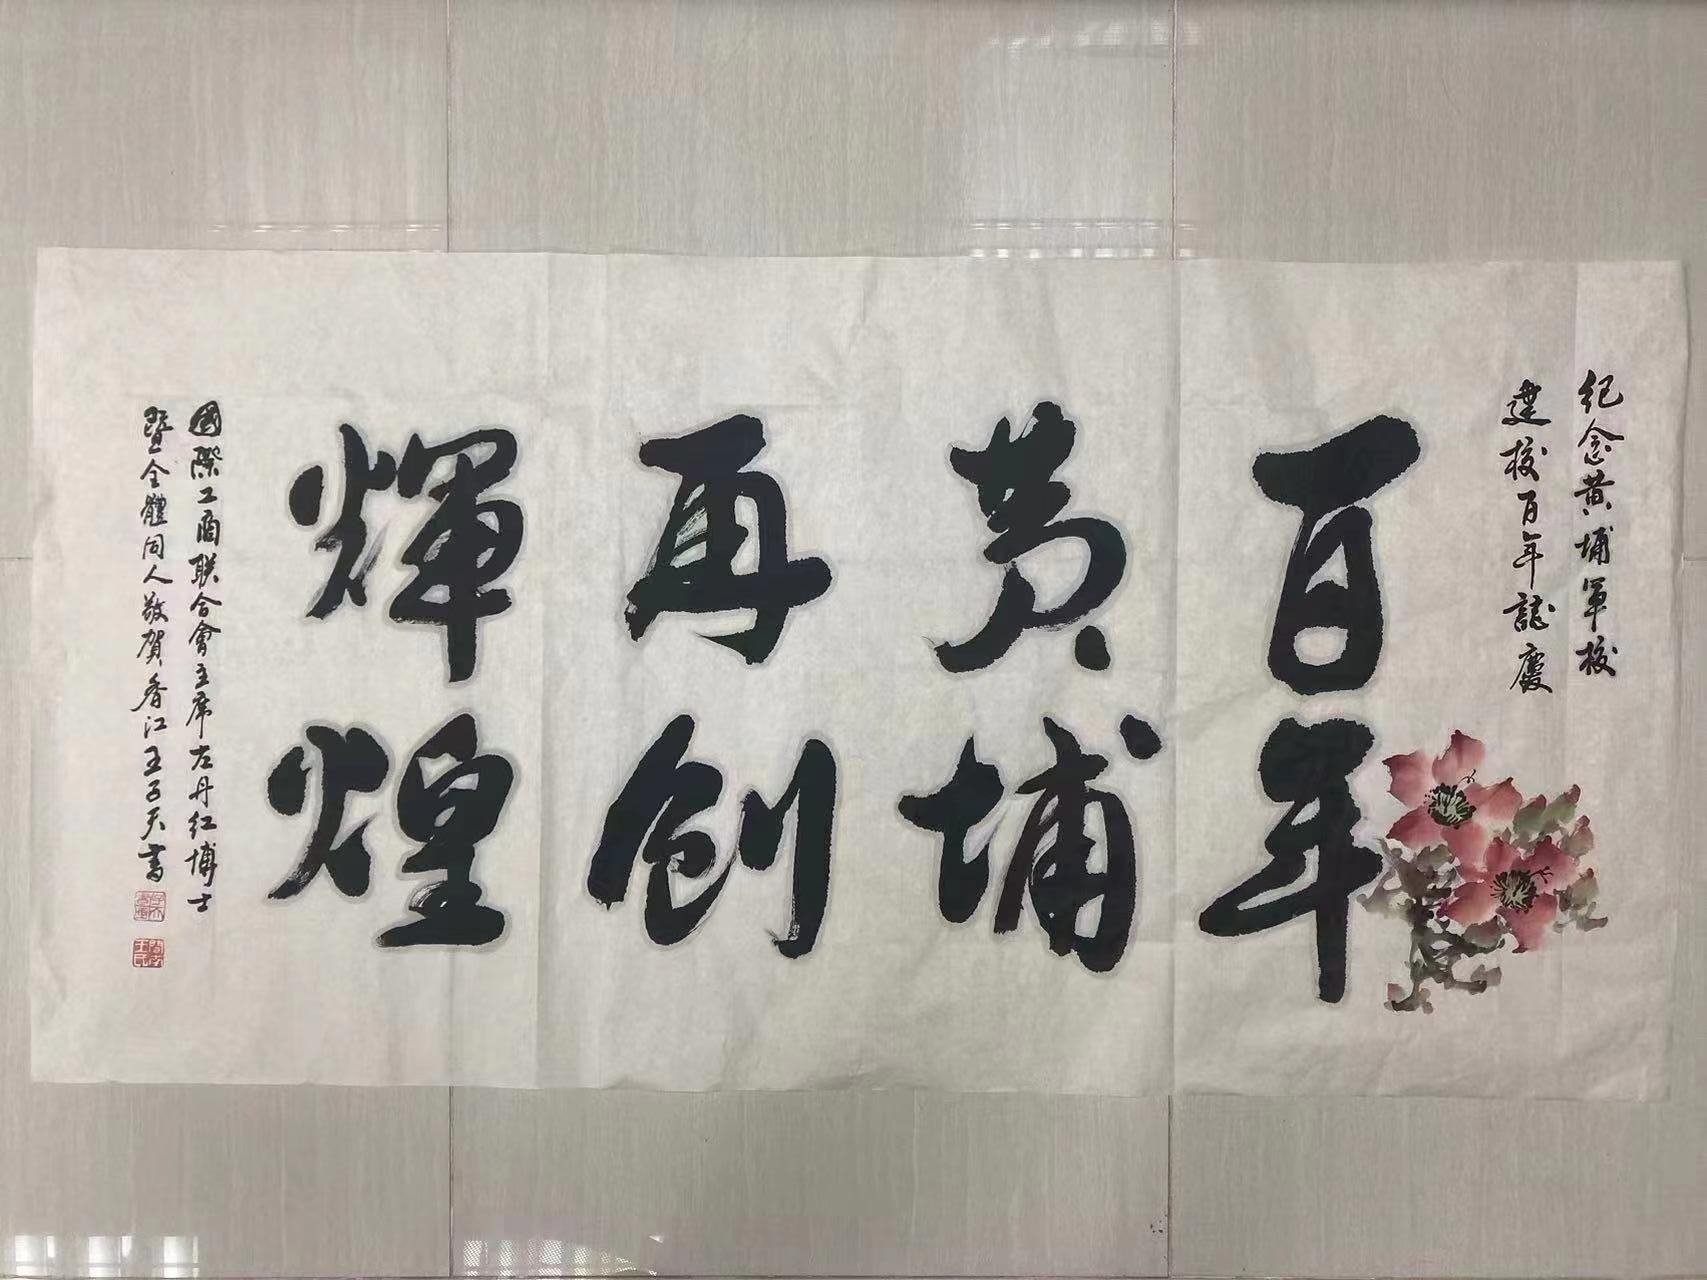 纪念黄埔軍校
建校百年誌慶
百年
黄埔
再创
輝煌
國際工商联合會主席左丹红博士
暨全體同人敬賀香江王子天書